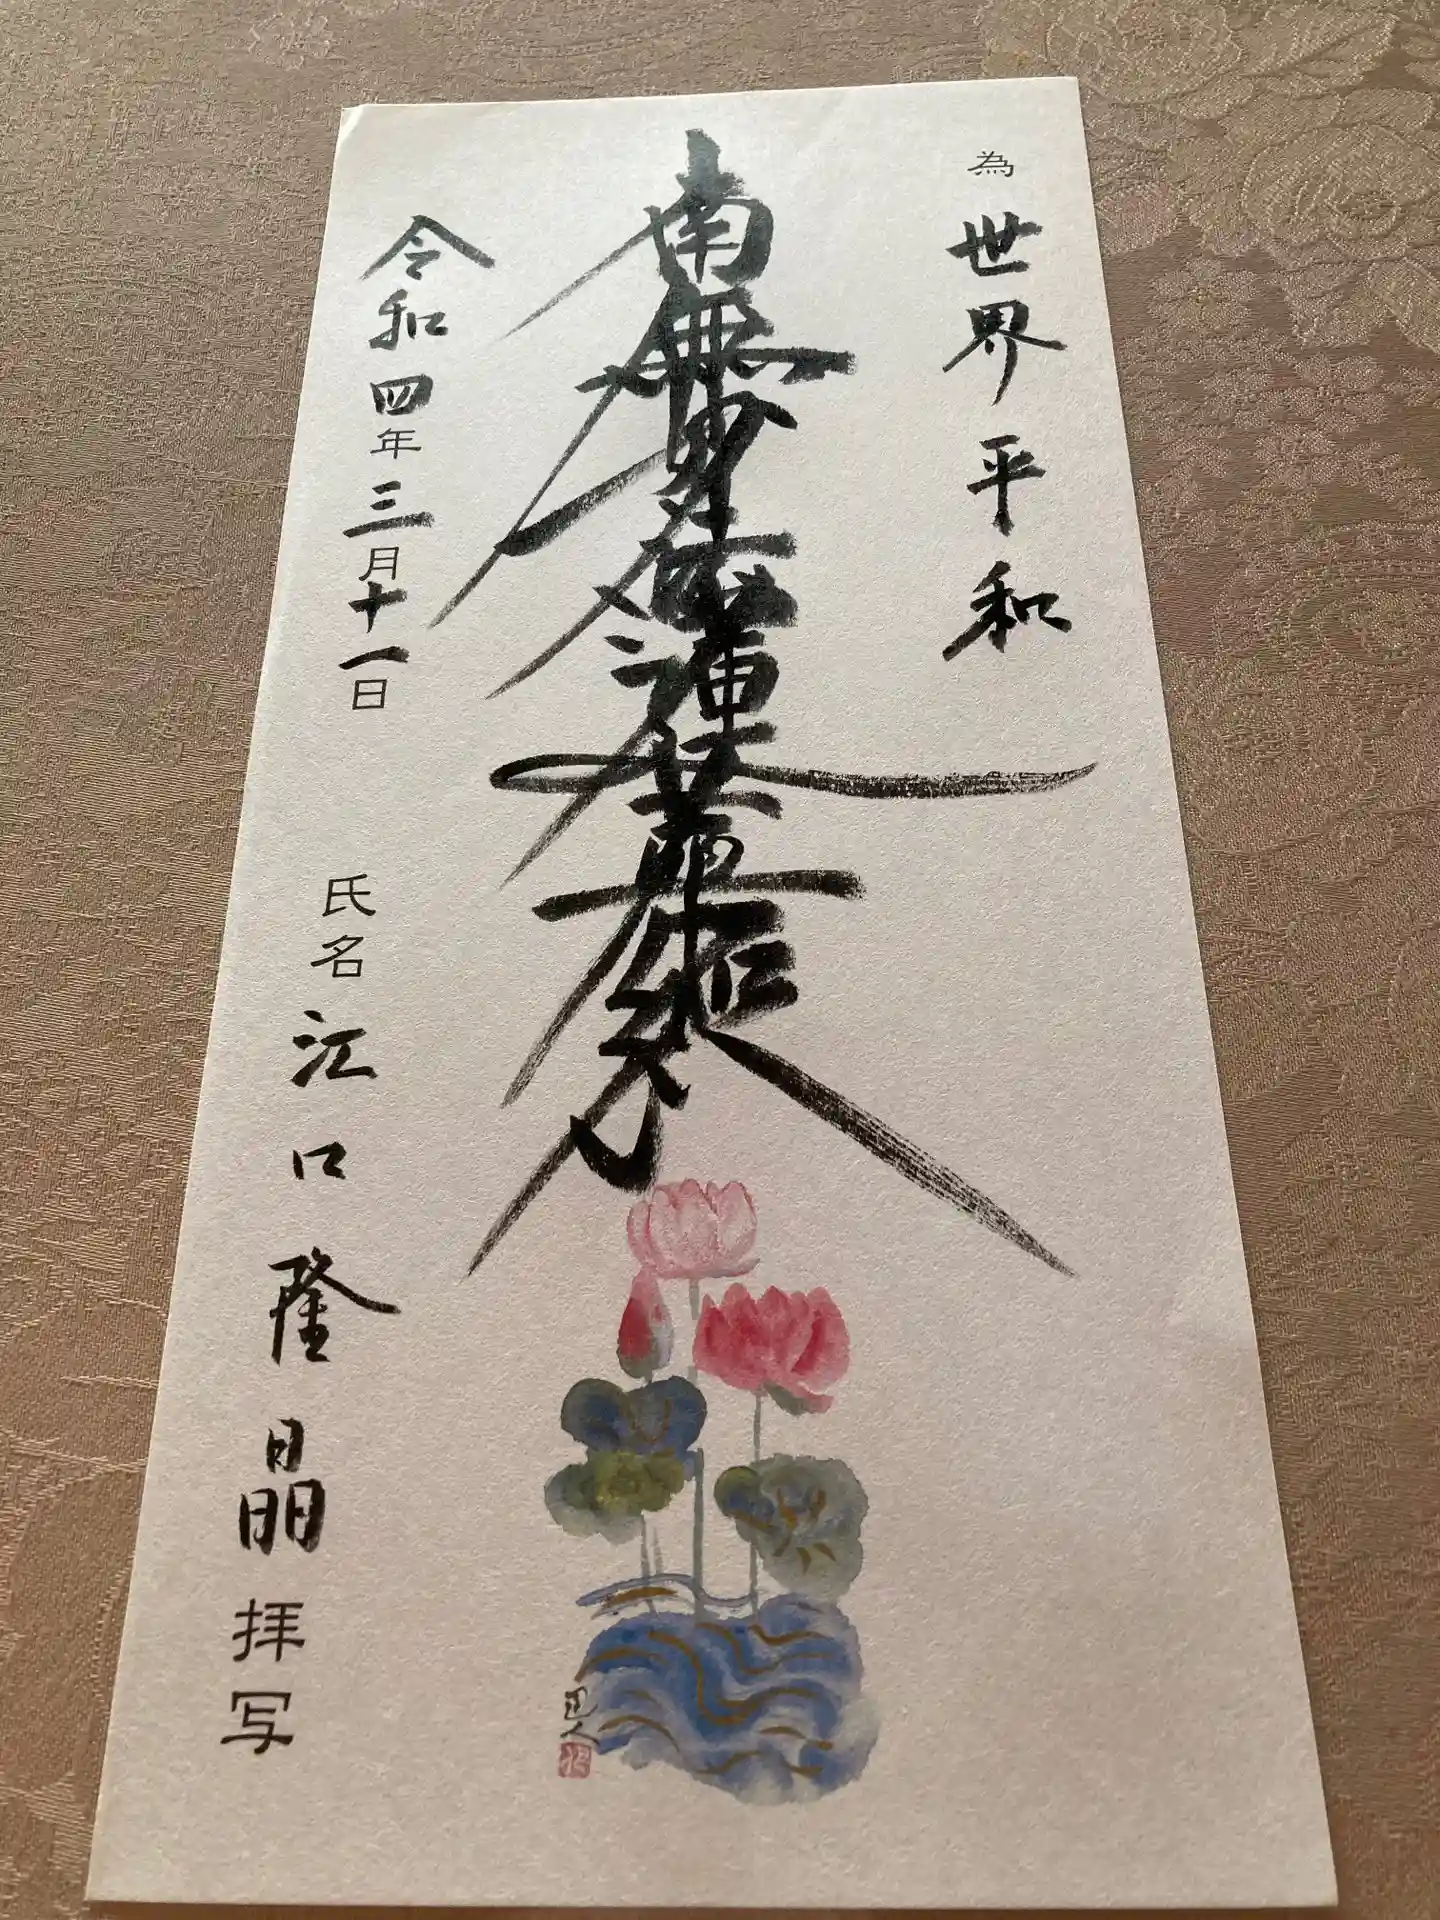 為 世界平和
南無妙法蓮華經
令和四年三月十一日
氏名 江口隆晶 拝写